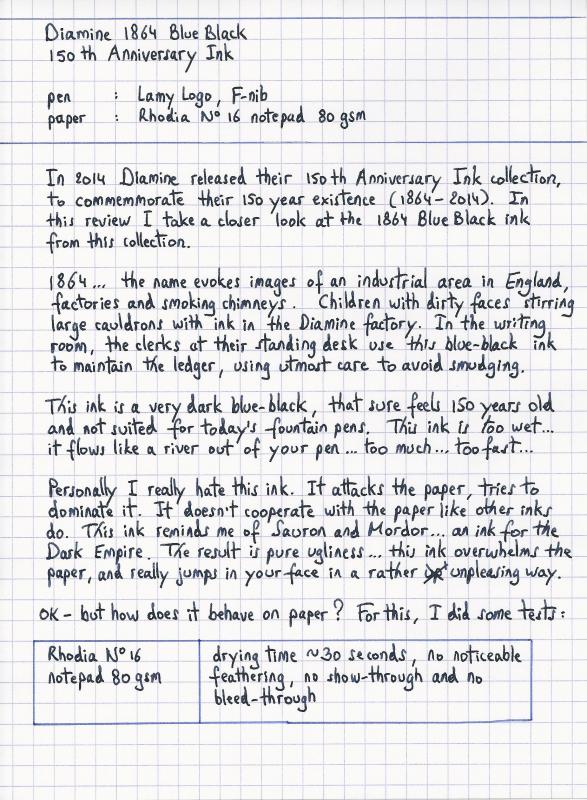 Diamine 1864 Blue Black
150th Anniversary Ink
pen : Lamy Logo, F-nib
paper : Rhodia N° 16 notepad 80 gsm
In 2014 Diamine released their 150th Anniversary Ink collection,
to commemorate their 150 year existence (1864-2014). In
this review I take a closer look at the 1864 Blue Black ink
from this collection.
1864... the name evokes images of an industrial area in England,
factories and smoking chimneys. Children with dirty faces stirring
large cauldrons with ink in the Diamine factory. In the writing
room, the clerks at their standing desk use this blue-black ink
to maintain the ledger, using utmost care to avoid smudging.
This ink is a very dark blue-black, that sure feels 150 years old
and not suited for today's fountain pens. This ink is too wet...
it flows like a river out of your pen... too much... too fast...
Personally I really hate this ink. It attacks the paper, tries to
dominate it. It doesn't cooperate with the paper like other inks
do. This ink reminds me of Sauron and Mordor... an ink for the
Dark Empire. The result is pure ugliness... this ink overwhelms the
paper, and really jumps in your face in a rather unpleasing way.
OK - but how does it behave on paper? For this, I did some tests:
Rhodia N° 16
notepad 80 gsm
drying time ~30 seconds, no noticeable
feathering, no show-through and no
bleed-through